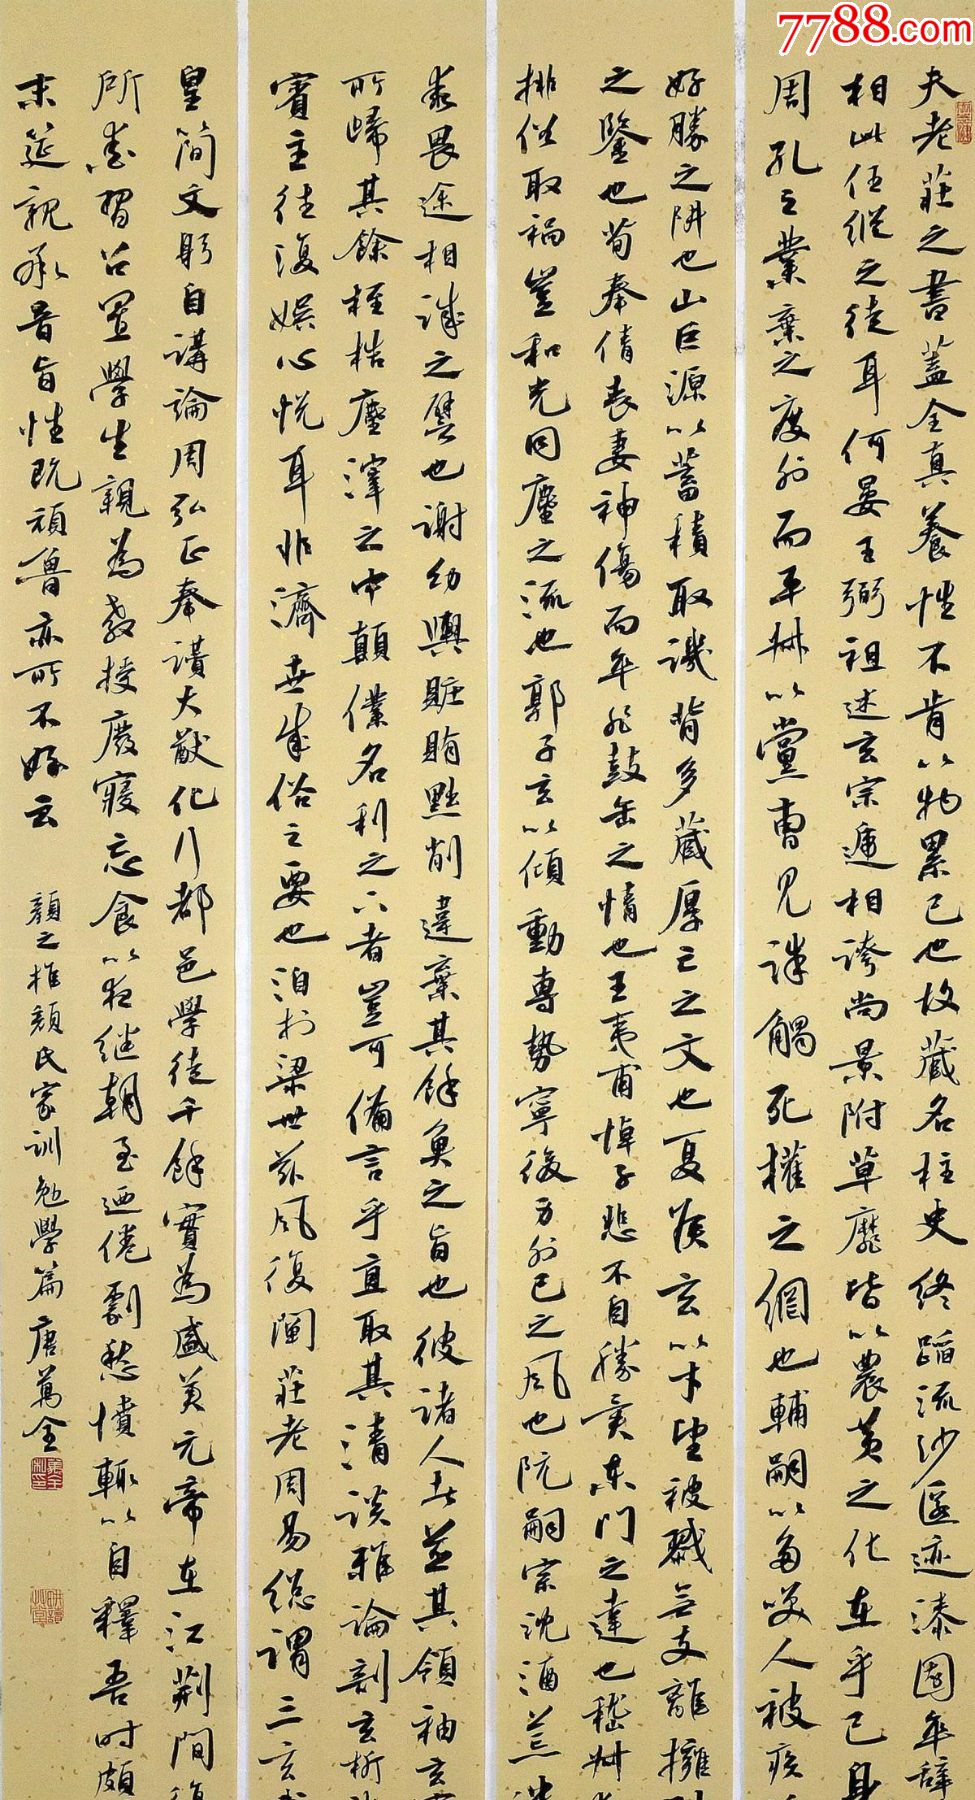 夫老莊之書蓋全真養性不肯以物累己也故藏名柱史終蹈流沙匿迹漆園卒辞
相此任縱之徒耳何晏王弼祖述玄宗遞相誇尚景附草靡皆以農黄之化在乎己身
周孔之業棄之度外而平叔以黨曹見誅觸死權之網也輔嗣以多笑人被疾
好勝之阱也山巨源以蓄積取譏背多藏厚亡之文也夏侯玄以才望被戮無支離擁
之鑒也荀奉倩喪妻神傷而卒非鼓缶之情也王夷甫悼子悲不自勝異東门之達也嵇叔
排俗取禍豈和光同塵之流也郭子玄以傾動專勢寧後身外己之风也阮嗣宗沈酒荒
乖畏途相誡之譬也謝幼輿贓賄黜削違棄其餘魚之旨也彼諸人者並其領袖玄
所歸其餘桎梏塵滓之中顛僕名利之下者豈可備言乎直取其清談雅論剖玄析
賓主往復娱心悦耳非濟世成俗之要也洎於梁世兹风復闡莊老周易總謂三玄
皇简文躬自講論周弘正奉讚大猷化行都邑學徒千餘實為盛美元帝在江荆間
所愛習召置學生親為教授廢寢忘食以夜继朝至迺倦劇愁憤輒以自釋吾时頗
末筵親承音旨性既頑魯亦所不好云
顔之推顔氏家训勉學篇唐萬全
7788.com